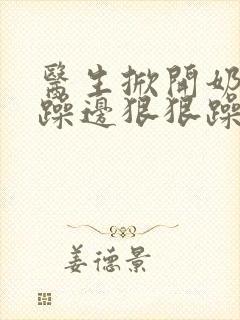 醫生掀開奶
躁邊狠狠躁
姜德景